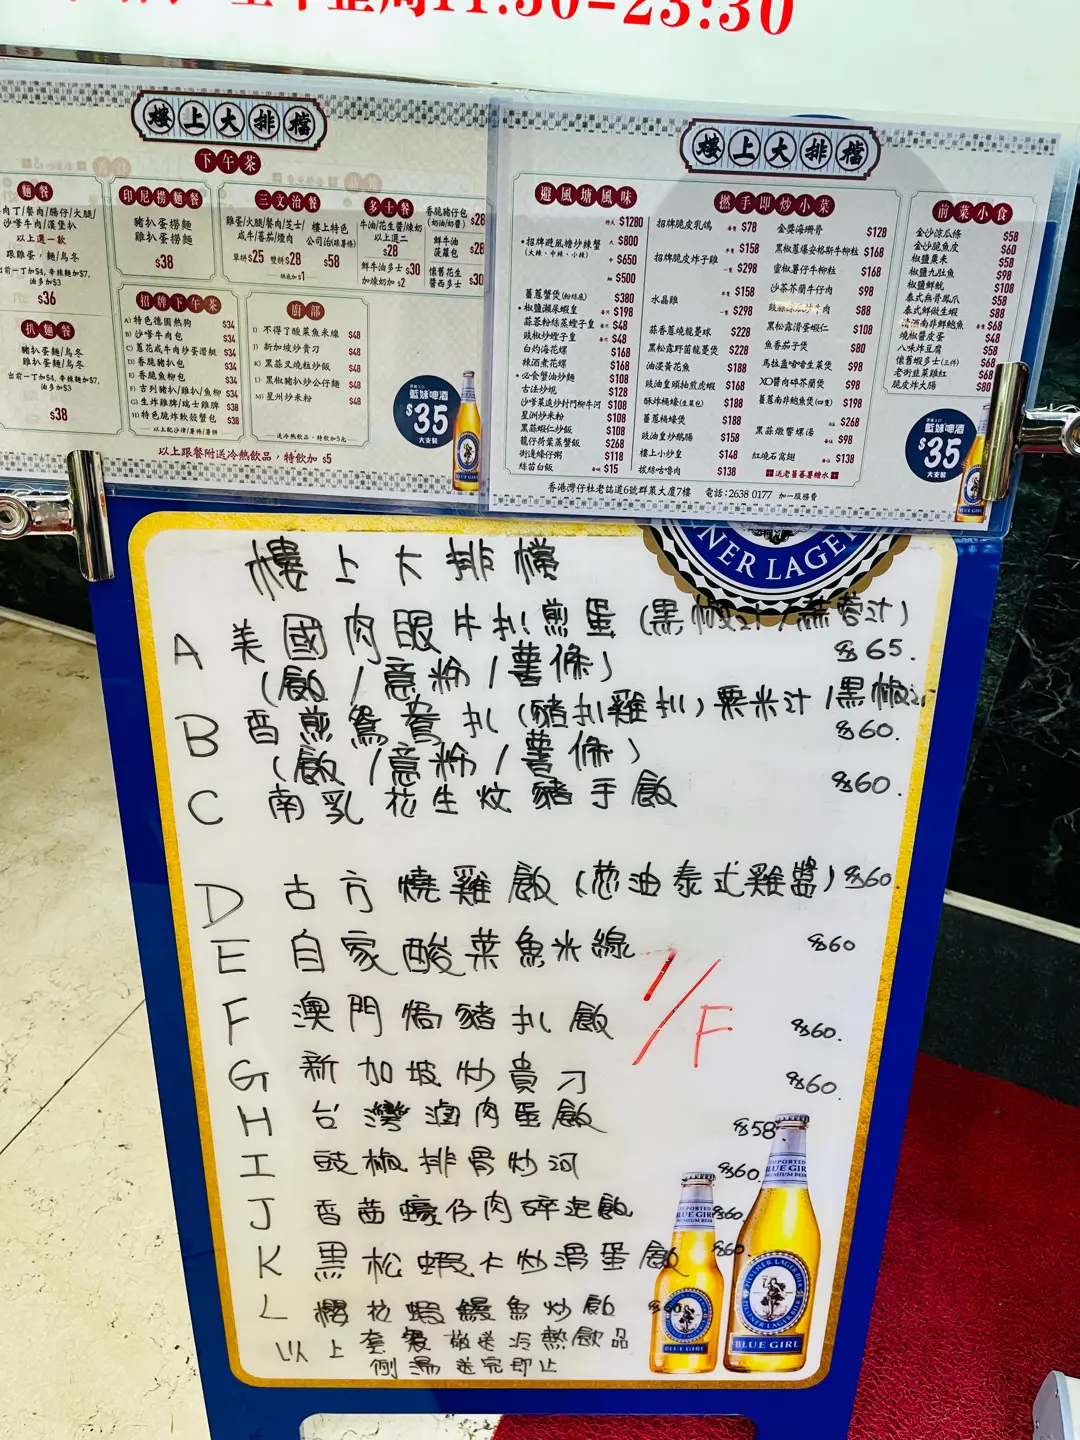 11:30-23:30
樓上大排檔
下午茶
麵餐
以上選一款
跟雞蛋，麵/烏冬
$36
扒麵餐
豬扒蛋麵/烏冬
雞扒蛋麵/烏冬
$38
印尼撈麵餐
豬扒蛋撈麵
雞扒蛋撈麵
$38
三文治餐
雞蛋/火腿/餐肉/芝士/
咸牛/蕃茄/燒肉
單拼$25 雙拼$28
樓上特色
公司治(跟薯條)
$58
多士餐
牛油/花生醬/煉奶
以上選二
$28
鮮牛油多士 $30
加煉奶加$2
香脆豬仔包
(奶油/奶醬)
$28
鮮牛油
菠蘿包
$28
懷舊花生
醬西多士
$30
招牌下午茶
A) 特色德國熱狗 $34
B) 沙嗲牛肉包 $34
C) 蔥花咸牛肉炒蛋潛艇 $34
D) 香脆豬扒包 $34
E) 香脆魚柳包 $34
F) 吉列豬扒/雞扒/魚柳 $34
G) 生炸雞脾/瑞士雞脾 $38
H) 特色脆炸軟殼蟹包 $38
以上配沙律/薯條/薯餅
廚部
I) 不得了酸菜魚米線 $48
J) 新加坡炒貴刁 $48
K) 黑蒜叉燒粒炒飯 $48
L) 黑椒豬扒炒公仔麵 $48
M) 星洲炒米粉 $48
送冷熱飲品，特飲加5元
以上跟餐附送冷熱飲品，特飲加 $5
藍妹啤酒
$35
大支裝
樓上大排檔
避風塘風味
特大 $1280
招牌避風塘炒辣蟹 大 $800
(大辣、中辣、小辣)
中 $650
細 $500
薑蔥蟹煲(粉絲底) $380
椒鹽瀨尿蝦皇 $198
蒜蓉粉絲蒸蟶子皇 $48
豉椒炒蟶子皇 $48
白灼海花螺 $168
辣酒煮花螺 $168
必食蟹油炒麵 $108
古法炒蜆 $128
沙嗲菜遠炒封門柳牛河 $108
星洲炒米粉 $108
黑蒜蝦仁炒飯 $108
籠仔荷葉蒸蟹飯 $268
街邊蠔仔粥 $118
絲苗白飯 $15
撚手即炒小菜
招牌脆皮乳鴿 $78
$158
招牌脆皮炸子雞
$298
水晶雞 $158
$298
蒜香蔥燒龍躉球 $228
黑松露野菌龍躉煲 $228
油浸黃花魚 $188
豉油皇頭抽煎虎蝦 $168
酥炸桶蠔(生菜包) $188
薑蔥桶蠔煲 $188
豉油皇炒鵝腸 $158
樓上小炒皇 $148
拔絲咕嚕肉 $138
金獎海珊骨 $128
黑椒蔥爆安格斯牛柳粒 $168
蜜椒薯仔牛柳粒 $168
沙茶芥蘭牛仔肉 $98
$88
黑松露滑蛋蝦仁 $108
魚香茄子煲 $80
馬拉盞啫啫生菜煲 $98
XO醬肉碎芥蘭煲 $98
薑蔥南非鮑魚煲(四隻) $198
黑蒜燉響螺湯 $268
$98
紅燒石窩翅 $138
送老薑蕃薯糖水
前菜小食
金沙涼瓜條 $58
金沙脆魚皮 $60
椒鹽粟米 $58
椒鹽九肚魚 $98
椒鹽鮮魷 $108
泰式無骨鳳爪 $58
泰式鮮做生蝦 $88
清酒南非鮮鮑魚 $68
燒椒醬皮蛋 $48
八味炸豆腐 $58
懷舊蝦多士(三件) $68
老街韭菜雞紅 $68
脆皮炸大腸 $80
藍妹啤酒
$35
大支裝
香港灣仔杜老誌道6號群策大廈7樓 電話：2638 0177 加一服務費
NER LAGER
樓上大排檔
A 美國肉眼牛扒煎蛋(黑椒汁/蒜蓉汁)
(飯/意粉/薯條) $65.
B 香煎鴛鴦扒(豬扒雞扒)粟米汁/黑椒汁
(飯/意粉/薯條) $60.
C 南乳花生炆豬手飯 $60.
D 古方燒雞飯(葱油泰式雞醬) $60.
E 自家酸菜魚米線 $60
F 澳門焗豬扒飯 $60.
G 新加坡炒貴刁 $60.
H 台灣滷肉蛋飯 $58
I 豉椒排骨炒河 $60.
J 香茜蠔仔肉碎泡飯 $60
K 黑松蝦仁炒滑蛋飯 $60.
L 櫻花蝦鰻魚炒飯 $60
以上套餐敬送冷熱飲品
例湯送完即止
1/F
IMPORTED
BLUE GIRL
PREMIUM BEER
PILSENER LAGER BEER
BLUE GIRL
BLUE GIRL